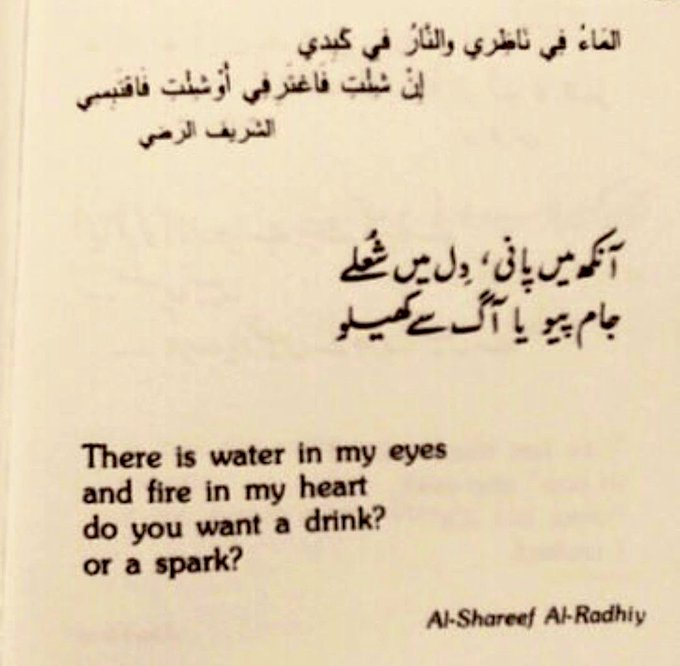 المَاءُ فِي نَاظِرِي والنَّارُ فِي كَبِدِي
إنْ شِئْتِ فَاغتَرِفي أوْ شِئْتِ فَاقتَبِسي
الشريف الرضي
آنکھ میں پانی، دِل میں شُعلے
جام پیو یا آگ سے کھیلو
There is water in my eyes
and fire in my heart
do you want a drink?
or a spark?
Al-Shareef Al-Radhiy